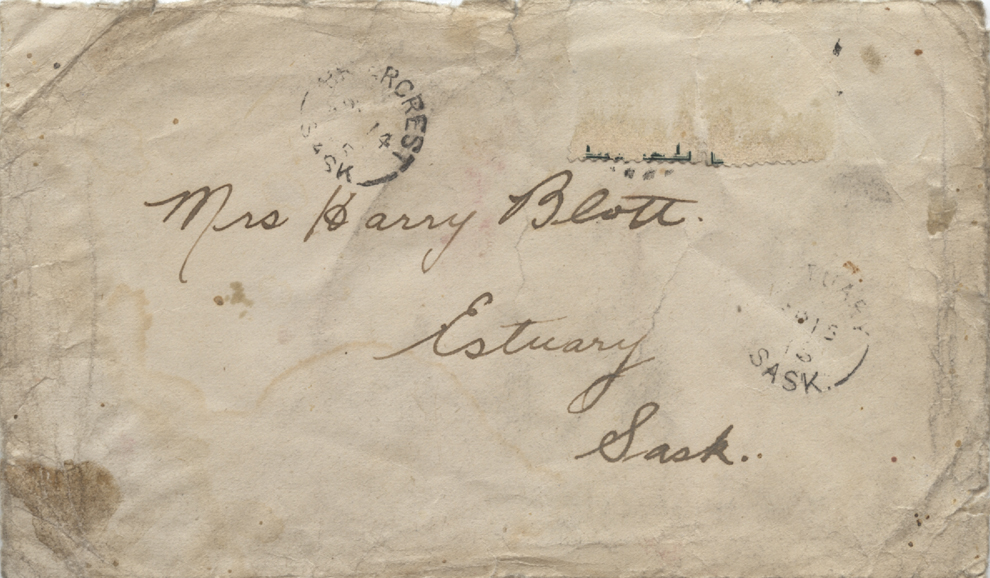 RCREST
14
SASK
Mrs Harry Blott.
Estuary
Sask..
TUARY
15
SASK.